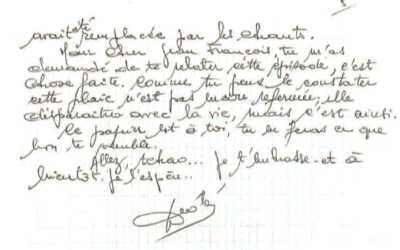 avait été remplacée par les chants.
Mon cher Jean François, tu m'as
demandé de te relater cette épisode, c'est
chose faite. Comme tu peux le constater
cette plaie n'est pas encore refermée, elle
disparaitra avec la vie, mais c'est ainsi.
Ce papier est à toi, tu en feras ce que
bon te semble.
Allez, tchao... je t'embrasse et à
bientôt j'espère..